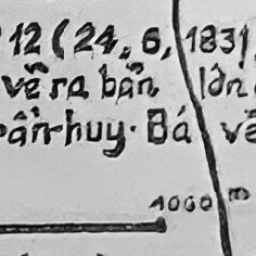 12 (24, 6, 1831
vẽ ra bản lớn
huy. Bá vẽ
1000 m